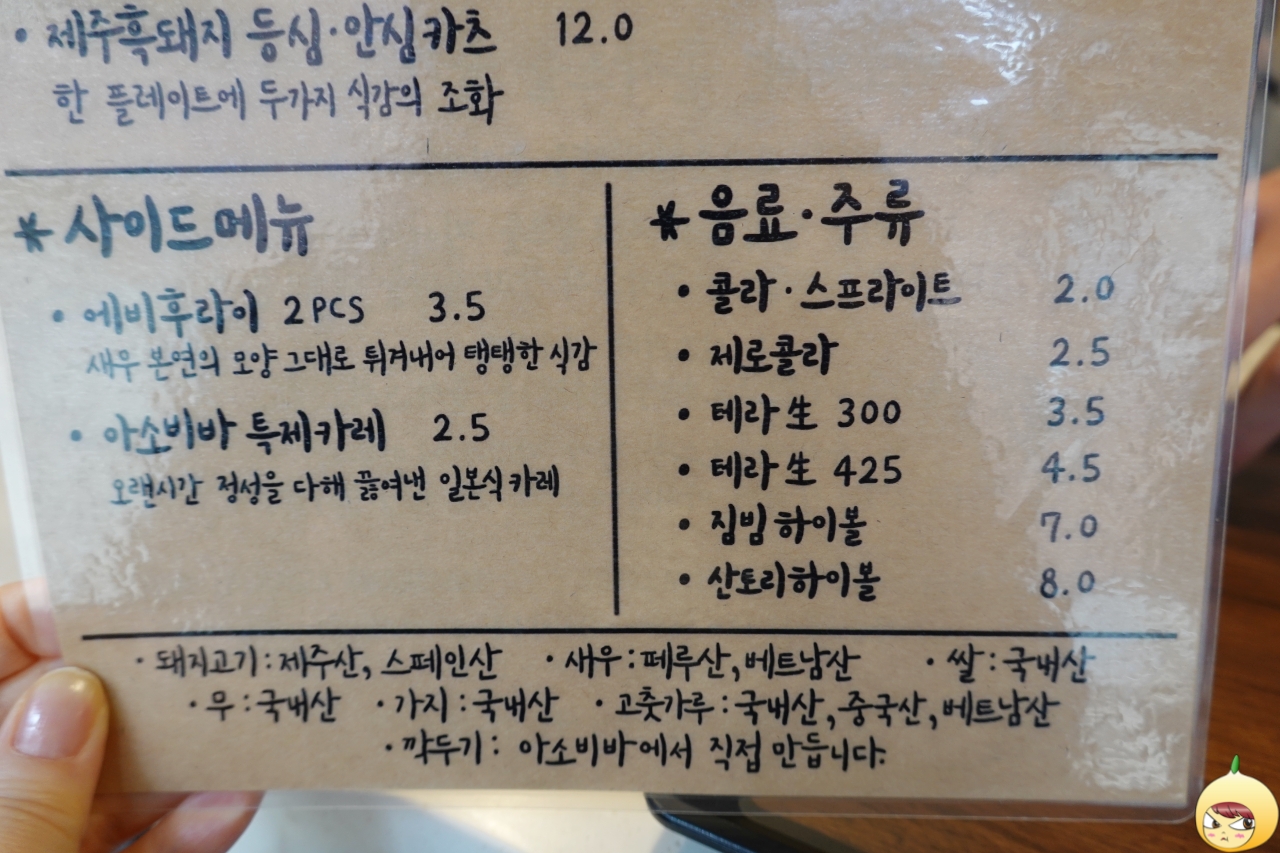 • 제주흑돼지 등심·안심카츠 12.0
한 플레이트에 두가지 식감의 조화
* 사이드메뉴
• 에비후라이 2PCS 3.5
새우 본연의 모양 그대로 튀겨내어 탱탱한 식감
• 아소비바 특제카레 2.5
오랜시간 정성을 다해 끓여낸 일본식 카레
* 음료·주류
• 콜라·스프라이트 2.0
• 제로콜라 2.5
• 테라生 300 3.5
• 테라生 425 4.5
• 짐빔하이볼 7.0
• 산토리하이볼 8.0
·돼지고기:제주산, 스페인산 ·새우:페루산,베트남산 ·쌀:국내산
·무:국내산 ·가지:국내산 ·고춧가루:국내산,중국산,베트남산
·깍두기: 아소비바에서 직접 만듭니다.